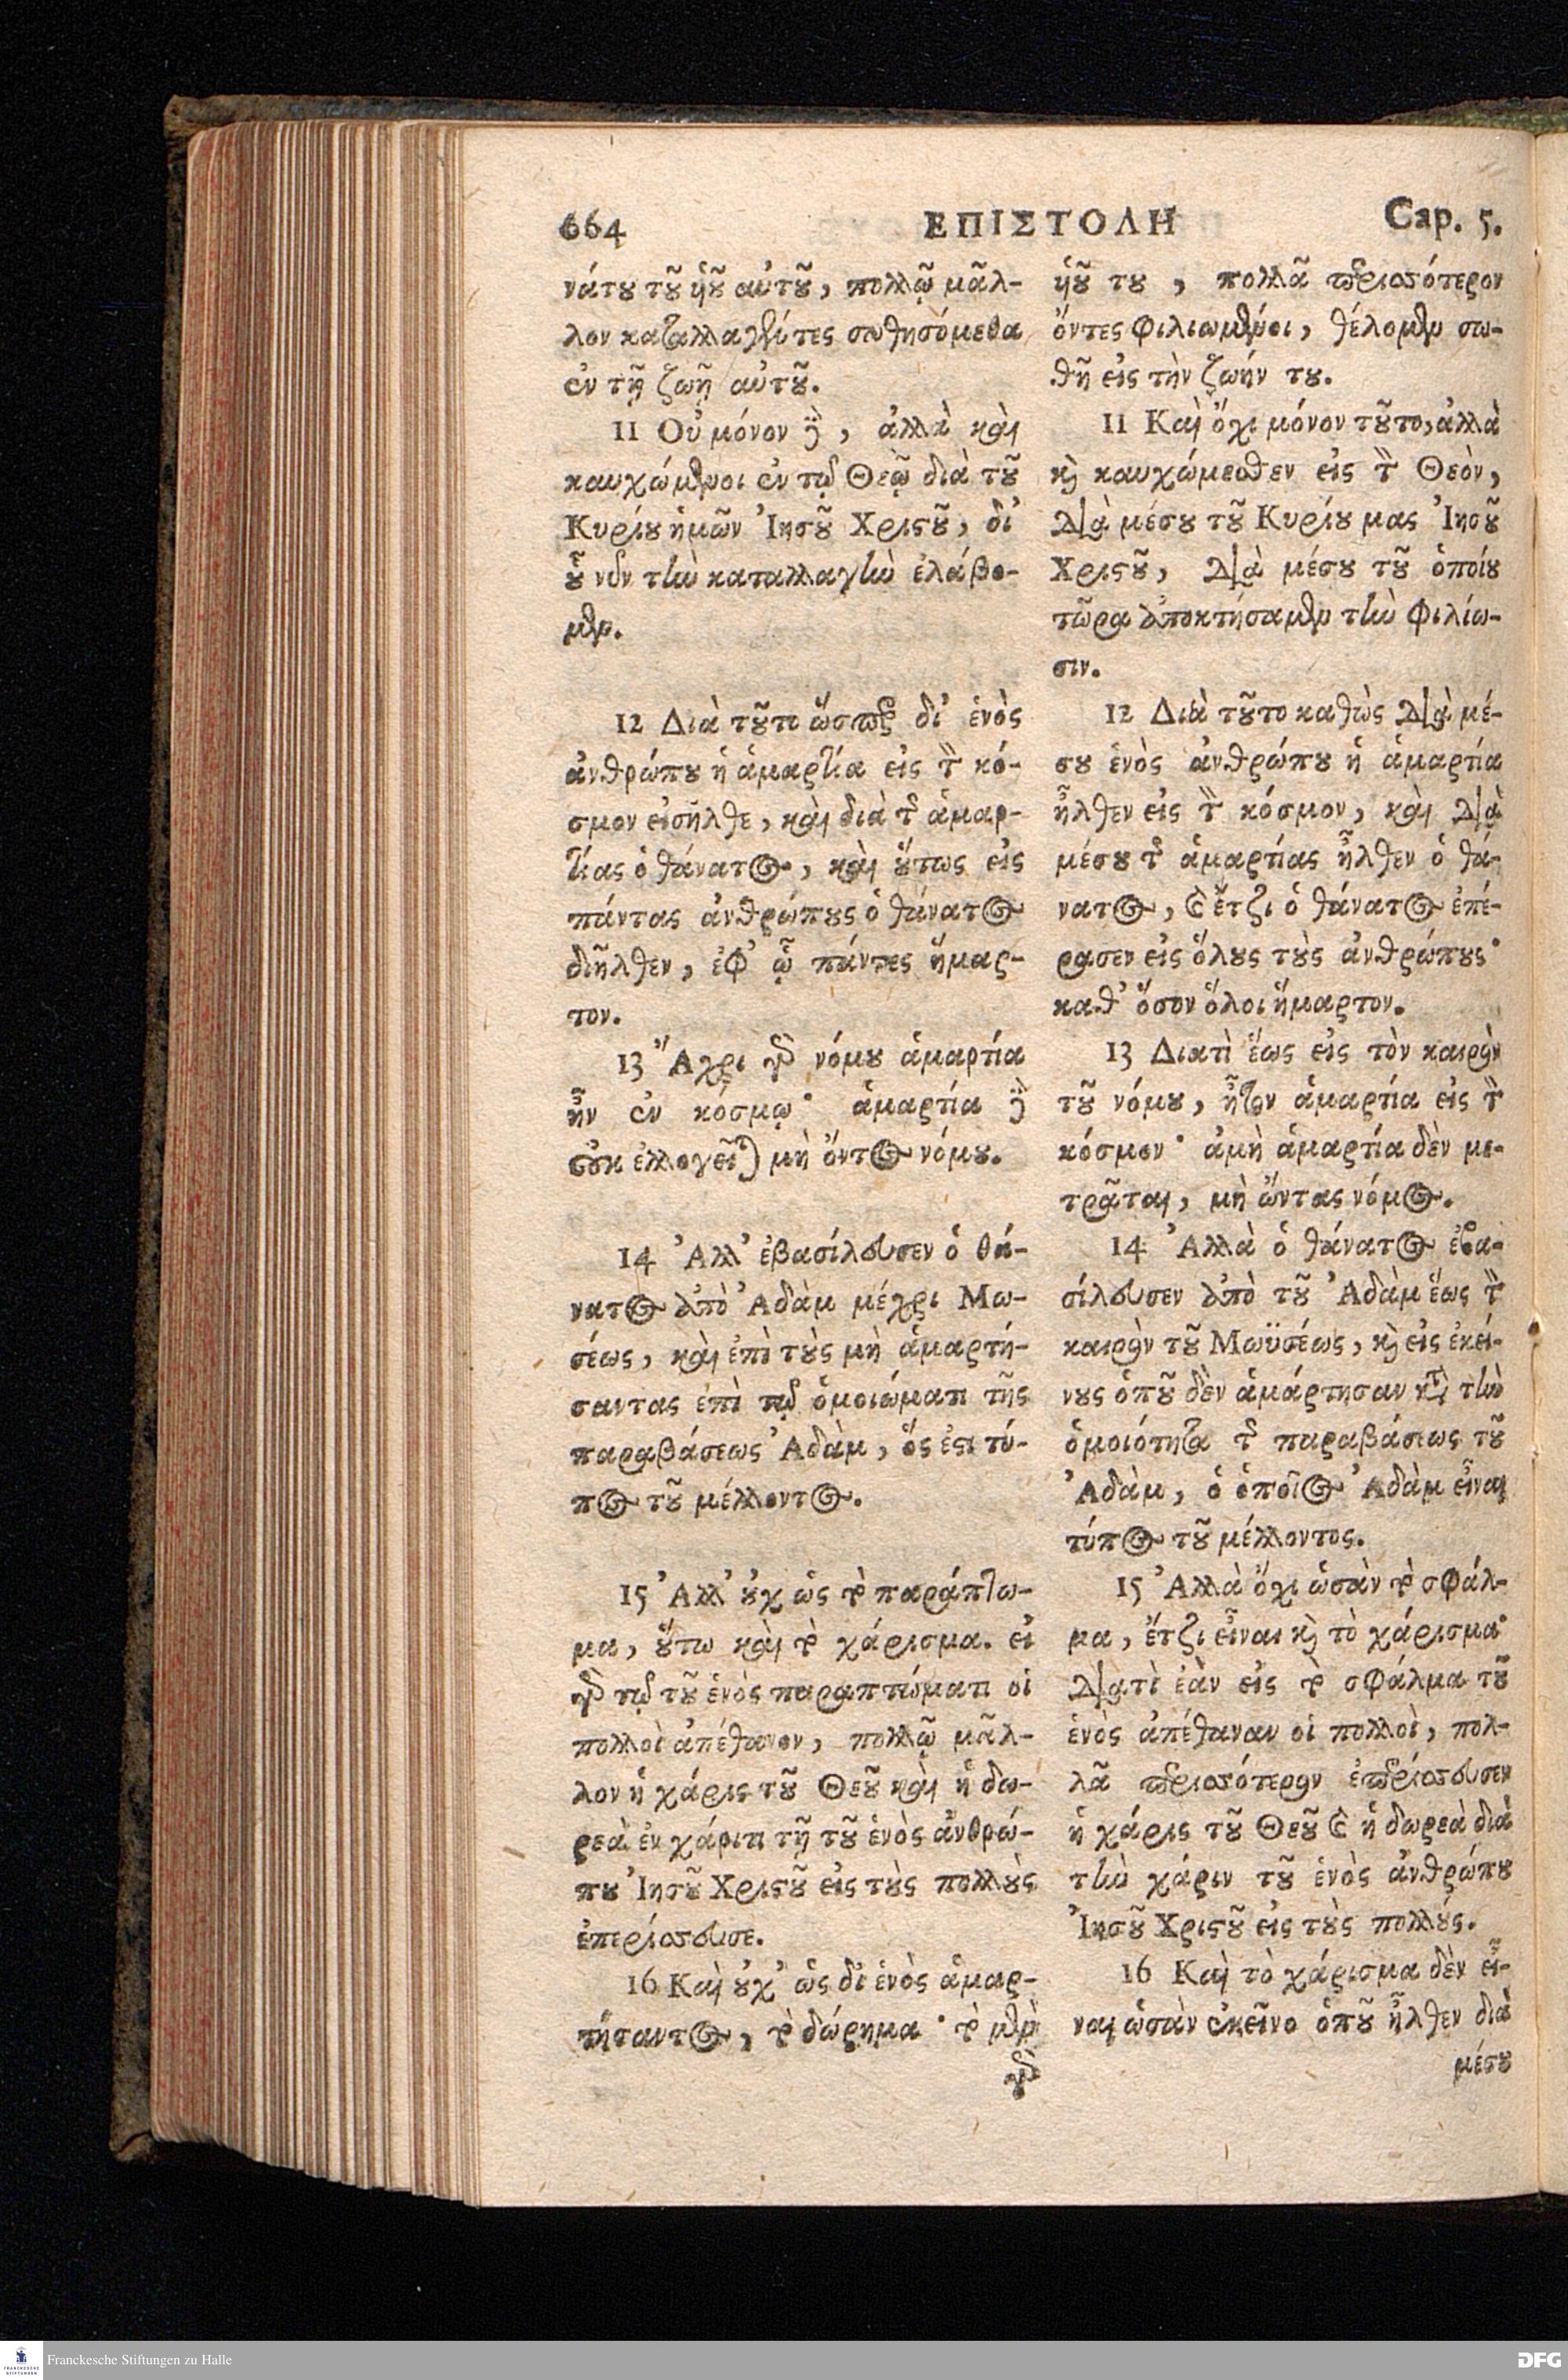 664 ΕΠΙΣΤΟΛΗ Cap. 5.
νάτȣ τȣ͂ ἡȣ͂ αὐτȣ͂, πολλῷ μᾶλ-
λον καταλλαγέντες σωθησόμεθα
ἐν τῇ ζωῇ αὐτȣ͂.
11 Οὐ μόνον δὲ, ἀλλὰ καὶ
καυχώμενοι ἐν τῷ Θεῷ διὰ τȣ͂
Κυρίȣ ἡμῶν Ἰησȣ͂ Χριϛȣ͂, δι'
ȣ̔͂ νῦν τὴν καταλλαγὴν ἐλάβο-
μεν.
12 Διὰ τȣ͂το ὥσπερ δι' ἑνὸς
ἀνθρώπȣ ἡ ἁμαρτία εἰς τὸν κό-
σμον εἰσῆλθε, καὶ διὰ τῆς ἁμαρ-
τίας ὁ θάνατος, καὶ ȣ̔́τως εἰς
πάντας ἀνθρώπȣς ὁ θάνατος
διῆλθεν, ἐφ' ᾧ πάντες ἥμαρ-
τον.
13 Ἄχρι γὰρ νόμȣ ἁμαρτία
ἦν ἐν κόσμῳ· ἁμαρτία δὲ
οὐκ ἐλλογεῖται μὴ ὄντος νόμȣ.
14 Ἀλλ' ἐβασίλευσεν ὁ θά-
νατος ἀπὸ Ἀδὰμ μέχρι Μω-
σέως, καὶ ἐπὶ τȣ̀ς μὴ ἁμαρτή-
σαντας ἐπὶ τῷ ὁμοιώματι τῆς
παραβάσεως Ἀδὰμ, ὅς ἐϛι τύ-
πος τȣ͂ μέλλοντος.
15 Ἀλλ' ȣ̓χ ὡς τὸ παράπτω-
μα, ȣ̔́τω καὶ τὸ χάρισμα. εἰ
γὰρ τῷ τȣ͂ ἑνὸς παραπτώματι οἱ
πολλοὶ ἀπέθανον, πολλῷ μᾶλ-
λον ἡ χάρις τȣ͂ Θεȣ͂ καὶ ἡ δω-
ρεὰ ἐν χάριτι τῇ τȣ͂ ἑνὸς ἀνθρώ-
πȣ Ἰησȣ͂ Χριϛȣ͂ εἰς τȣ̀ς πολλȣ̀ς
ἐπερίσσευσε.
16 Καὶ ȣ̓χ' ὡς δι' ἑνὸς ἁμαρ-
τήσαντος, τὸ δώρημα· τὸ μὲν
γὰρ
ἡȣ͂ τȣ, πολλᾶ περισσότερον
ὄντες φιλιωμένοι, θέλομεν σω-
θῆ εἰς τὴν ζωήν τȣ.
11 Καὶ ὄχι μόνον τȣ͂το, ἀλλὰ
καὶ καυχώμεσθεν εἰς τὸν Θεὸν,
διὰ μέσȣ τȣ͂ Κυρίȣ μας Ἰησȣ͂
Χριϛȣ͂, διὰ μέσȣ τȣ͂ ὁποίȣ
τῶρα ἀποκτήσαμεν τὴν φιλίω-
σιν.
12 Διὰ τȣ͂το καθὼς διὰ μέ-
σȣ ἑνὸς ἀνθρώπȣ ἡ ἁμαρτία
ἦλθεν εἰς τὸν κόσμον, καὶ διὰ
μέσȣ τῆς ἁμαρτίας ἦλθεν ὁ θά-
νατος, καὶ ἔτζι ὁ θάνατος ἐπέ-
ρασεν εἰς ὅλȣς τȣ̀ς ἀνθρώπȣς·
καθ' ὅσον ὅλοι ἥμαρτον.
13 Διατὶ ἕως εἰς τὸν καιρὸν
τȣ͂ νόμȣ, ἦτον ἁμαρτία εἰς τὸν
κόσμον· ἀμὴ ἁμαρτία δὲν με-
τρᾶται, μὴ ὤντας νόμος.
14 Ἀλλὰ ὁ θάνατος ἐβα-
σίλευσεν ἀπὸ τȣ͂ Ἀδὰμ ἕως τὸν
καιρὸν τȣ͂ Μωϋσέως, καὶ εἰς ἐκεί-
νȣς ὁπȣ͂ δὲν ἁμάρτησαν κατὰ τὴν
ὁμοιότητα τῆς παραβάσεως τȣ͂
Ἀδὰμ, ὁ ὁποῖος Ἀδὰμ εἶναι
τύπος τȣ͂ μέλλοντος.
15 Ἀλλὰ ὄχι ὡσὰν τὸ σφάλ-
μα, ἔτζι εἶναι καὶ τὸ χάρισμα·
διατὶ ἐὰν εἰς τὸ σφάλμα τȣ͂
ἑνὸς ἀπέθαναν οἱ πολλοὶ, πολ-
λᾶ περισσότερον ἐπερίσσευσεν
ἡ χάρις τȣ͂ Θεȣ͂ καὶ ἡ δωρεὰ διὰ
τὴν χάριν τȣ͂ ἑνὸς ἀνθρώπȣ
Ἰησȣ͂ Χριϛȣ͂ εἰς τȣ̀ς πολλȣς.
16 Καὶ τὸ χάρισμα δὲν εἶ-
ναι ὡσὰν ἐκεῖνο ὁπȣ͂ ἦλθεν διὰ
μέσȣ
Franckesche Stiftungen zu Halle
DFG